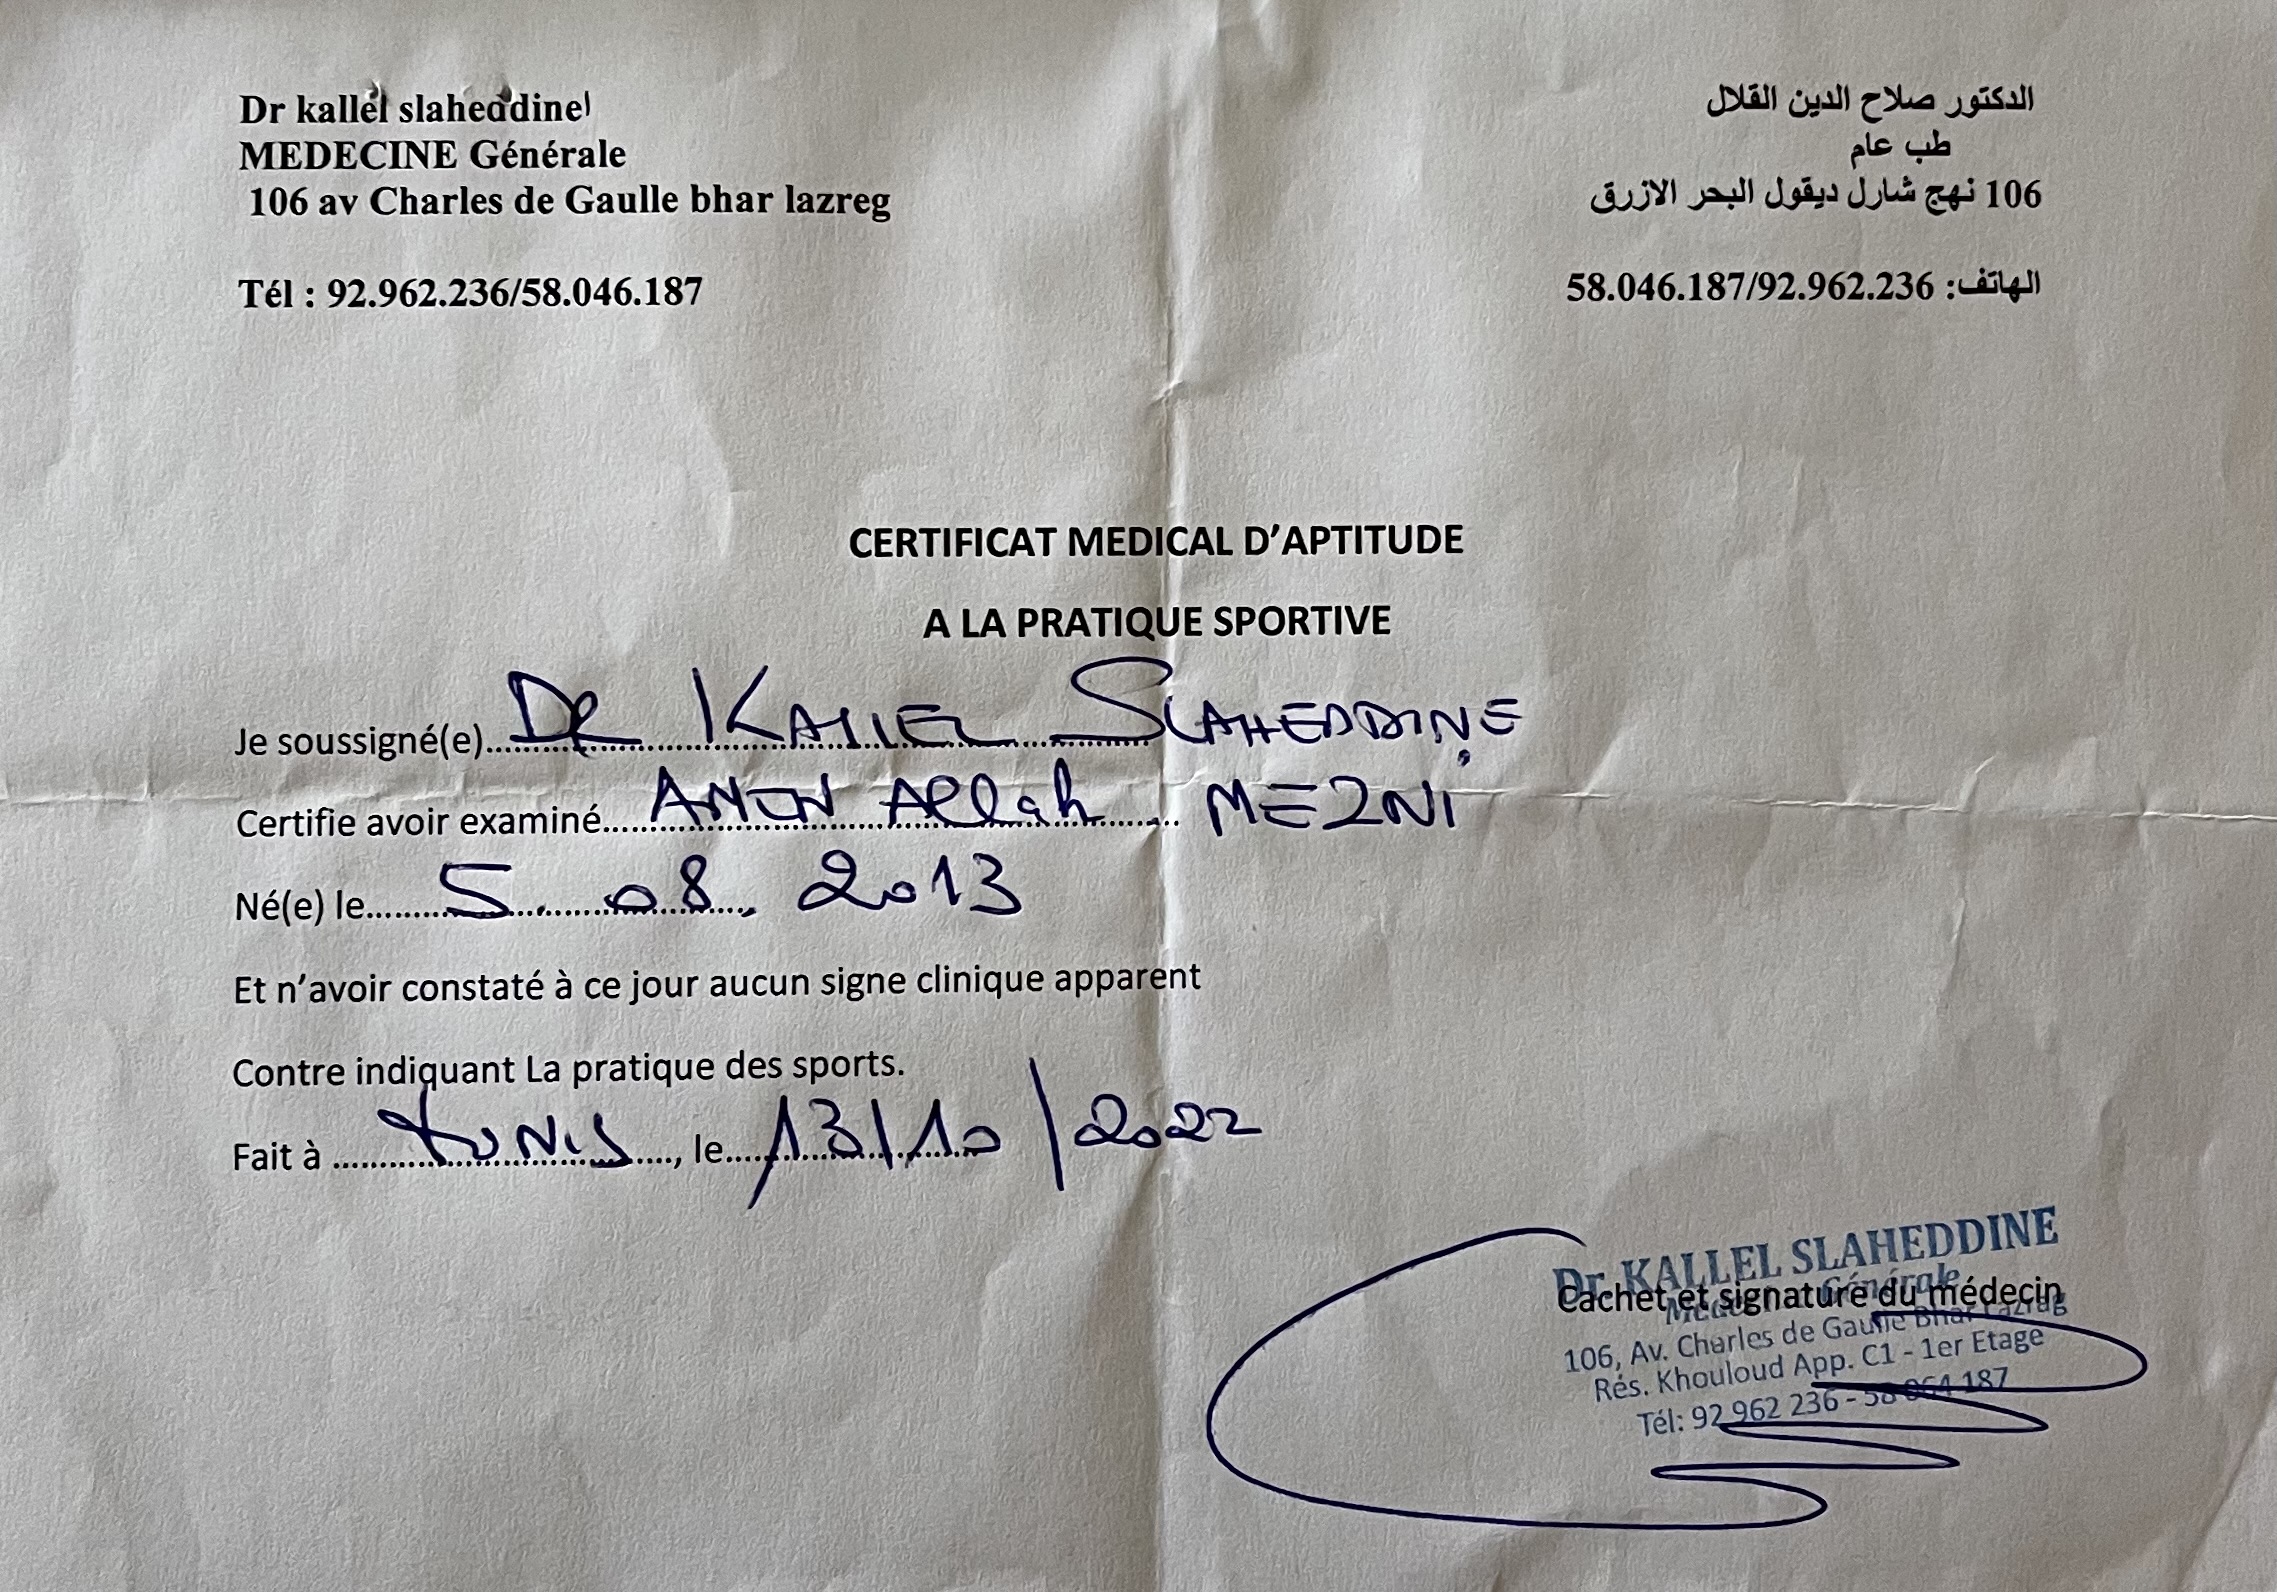 Dr kallel slaheddine
MEDECINE Générale
106 av Charles de Gaulle bhar lazreg
Tél : 92.962.236/58.046.187
الدكتور صلاح الدين القلال
طب عام
106 نهج شارل ديقول البحر الازرق
الهاتف: 58.046.187/92.962.236
CERTIFICAT MEDICAL D'APTITUDE
A LA PRATIQUE SPORTIVE
Je soussigné(e)....DR KALLEL SLAHEDDINE
Certifie avoir examiné....AMEN Allah MEZNI
Né(e) le....5. 08. 2013
Et n'avoir constaté à ce jour aucun signe clinique apparent
Contre indiquant La pratique des sports.
Fait à ....tUNIS...., le....13/10/2022
Dr. KALLEL SLAHEDDINE
Générale
Cachet et signature du médecin
106, Av. Charles de Gaulle Bhar Lazrag
Rés. Khouloud App. C1 - 1er Etage
Tél: 92 962 236 - 58 064 187